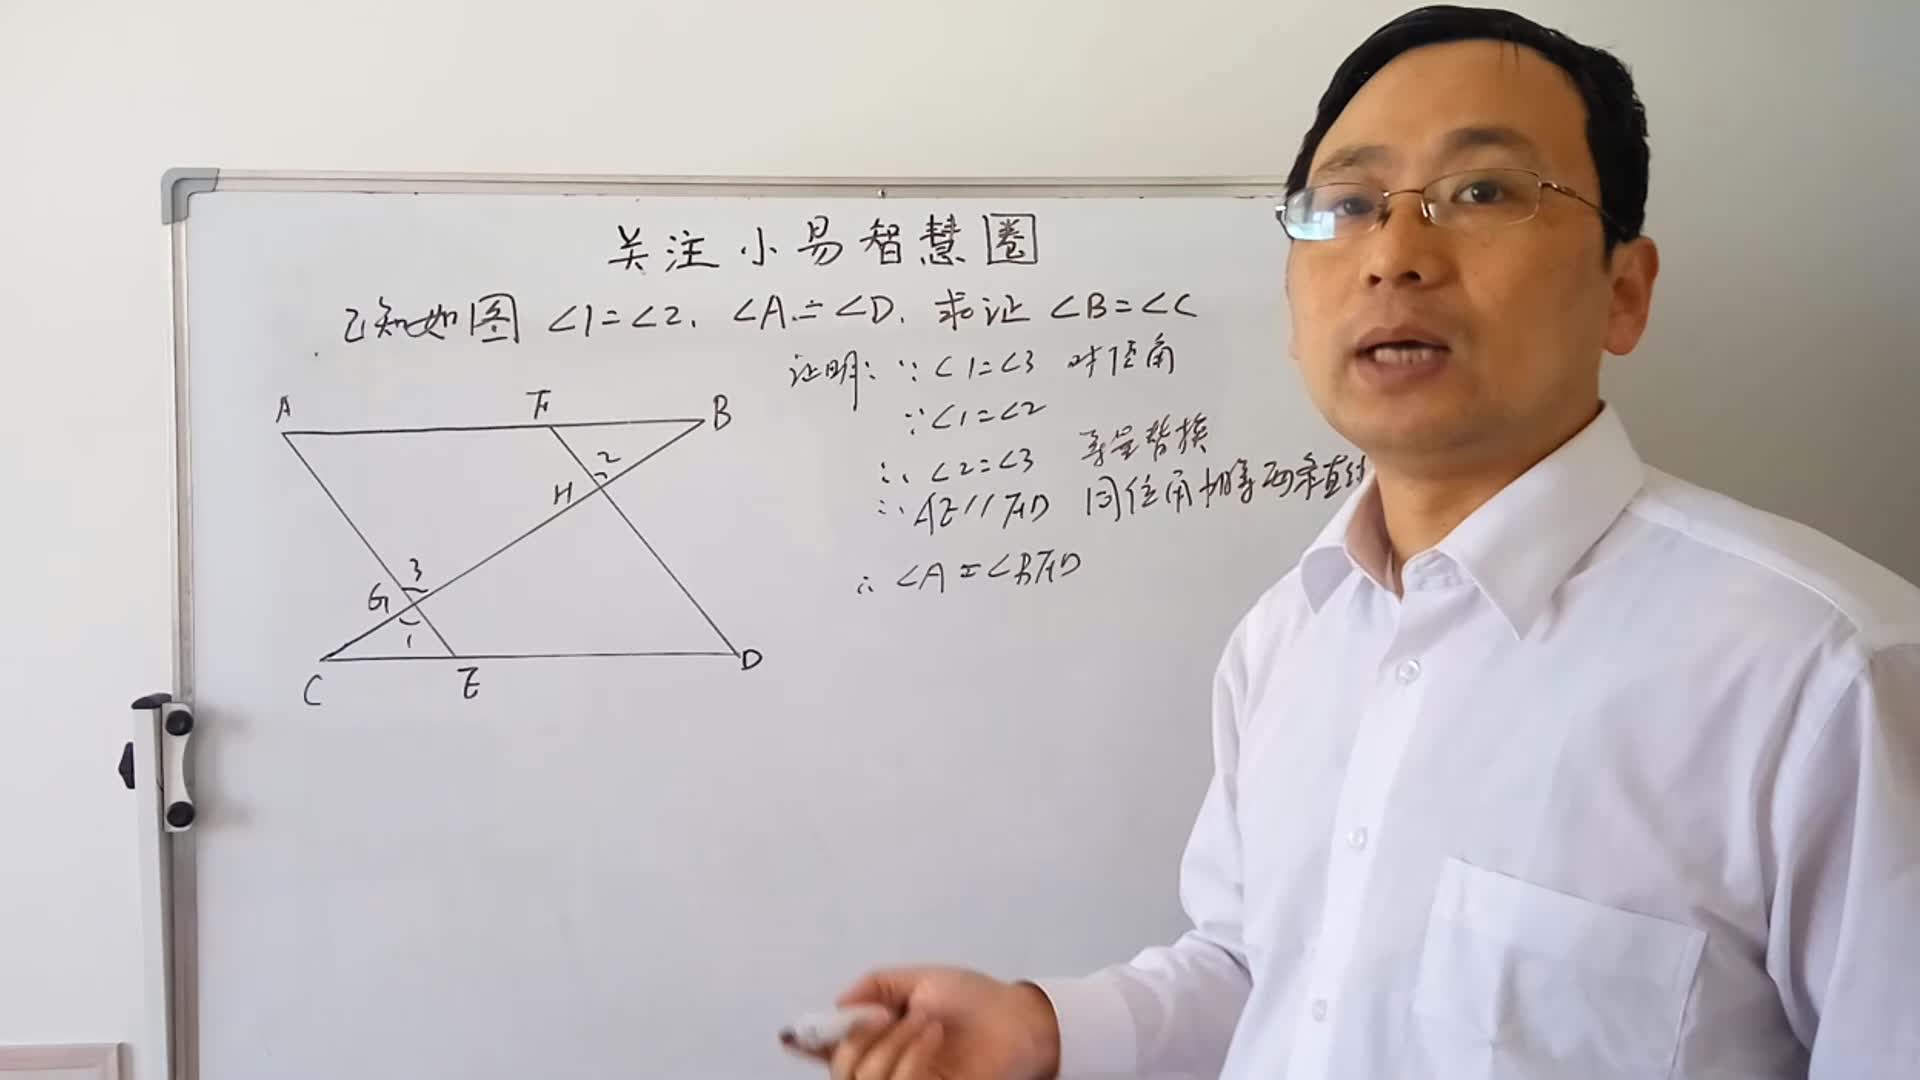 关注小易智慧圈
已知如图 ∠1=∠2. ∠A=∠D. 求证 ∠B=∠C
证明: ∵ ∠1=∠3 对顶角
∵ ∠1=∠2
∴ ∠2=∠3 等量替换
∴ AE//FD 同位角相等两条直线
∴ ∠A=∠BFD
A F B
2
H
3
G
1
C E D